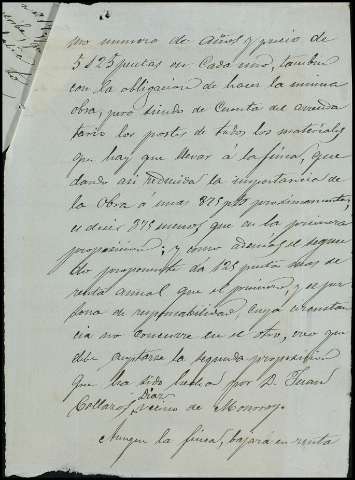 mo numero de años y precio de
5125 pesetas en cada uno, tambien
con la obligacion de hacer la misma
obra, pero siendo de cuenta del arrenda
tario los portes de todos los materiales
que hay que llevar á la finca, que
dando asi reducida la importancia de
la obra a unas 875 pts proximamente,
es decir 375 menos que en la primera
proposicion; y como demas el segun
do proponente da 125 pesetas mas de
renta anual que el primero, y es per
sona de responsabilidad cuya circunstan
cia no concurre en el otro, creo que
debe aceptarse la segunda proposicion
que ha sido hecha por D. Juan
Collazos Diaz vecino de Monroy.
Aunque la finca, bajará en renta